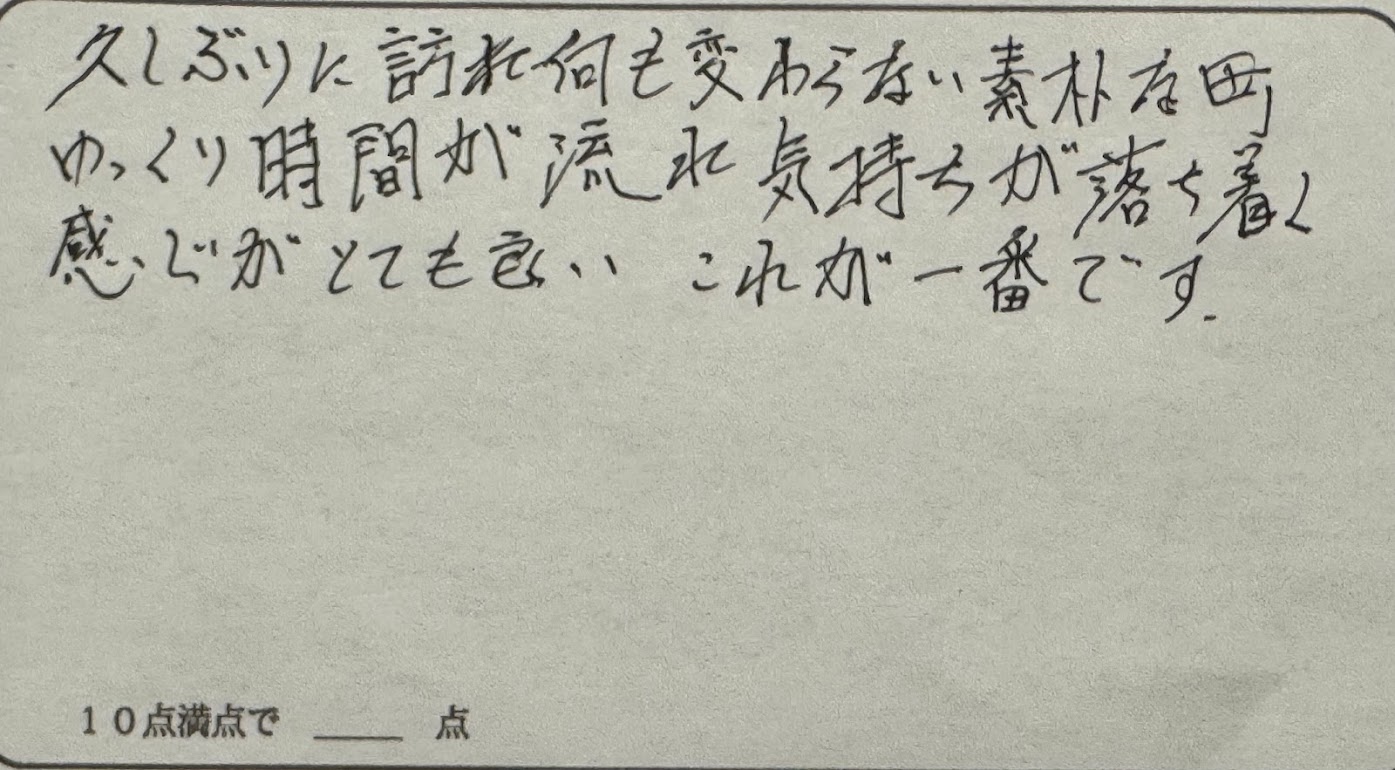 久しぶりに訪れ何も変わらない素朴な町
ゆっくり時間が流れ気持ちが落ち着く
感じがとても良い これが一番です.
10点満点で ____ 点